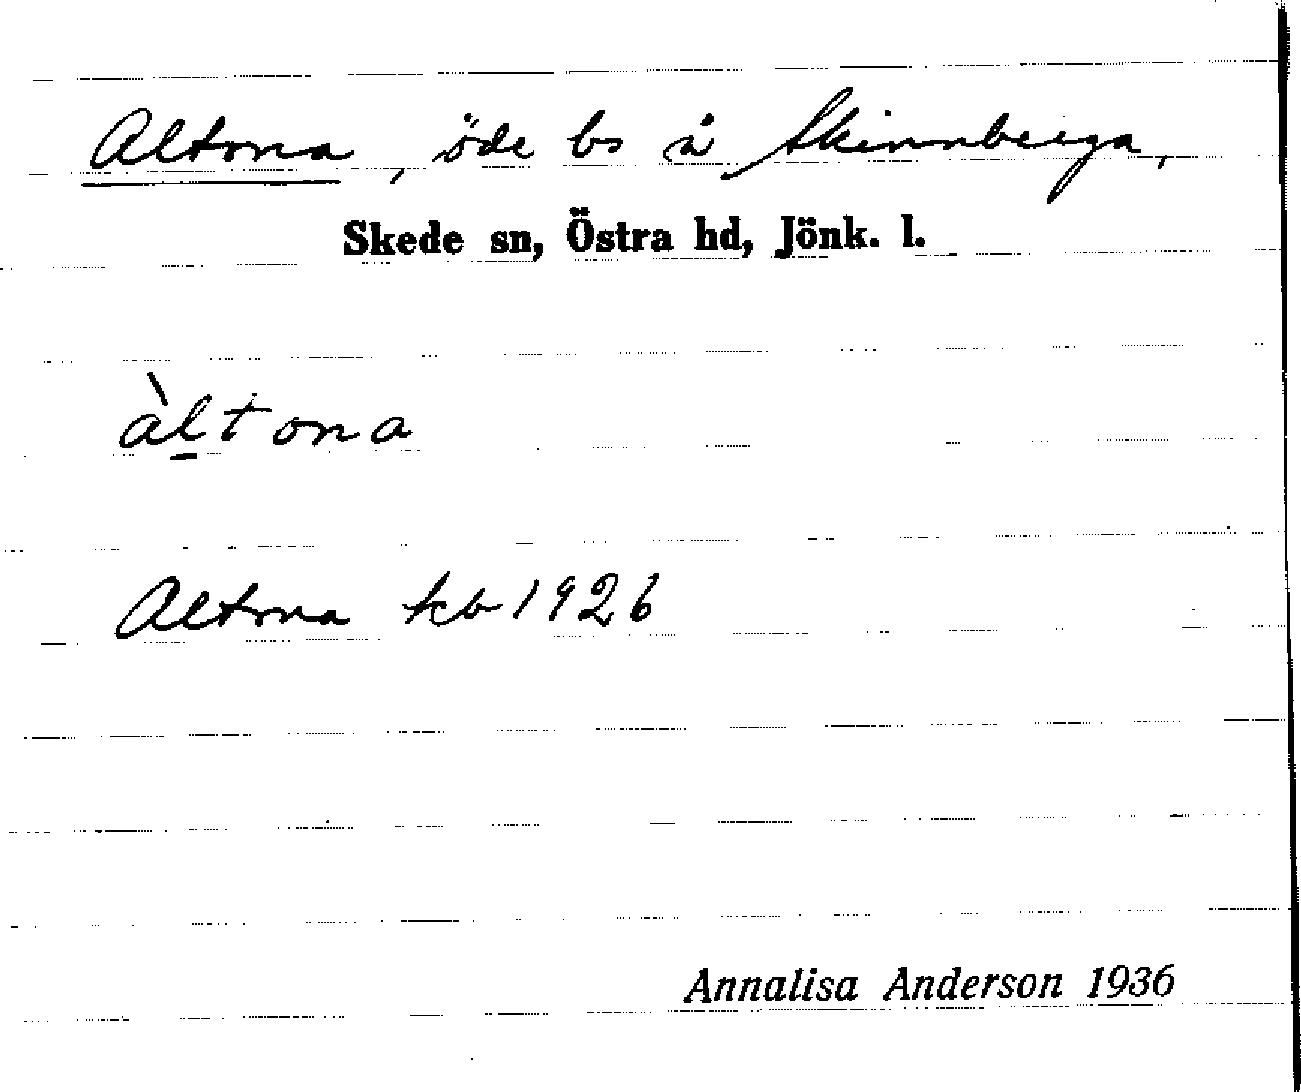 Altona, öde bs å Skinnberga,
Skede sn, Östra hd, Jönk. l.
àl̲tona
Altona kb 1926
Annalisa Anderson 1936